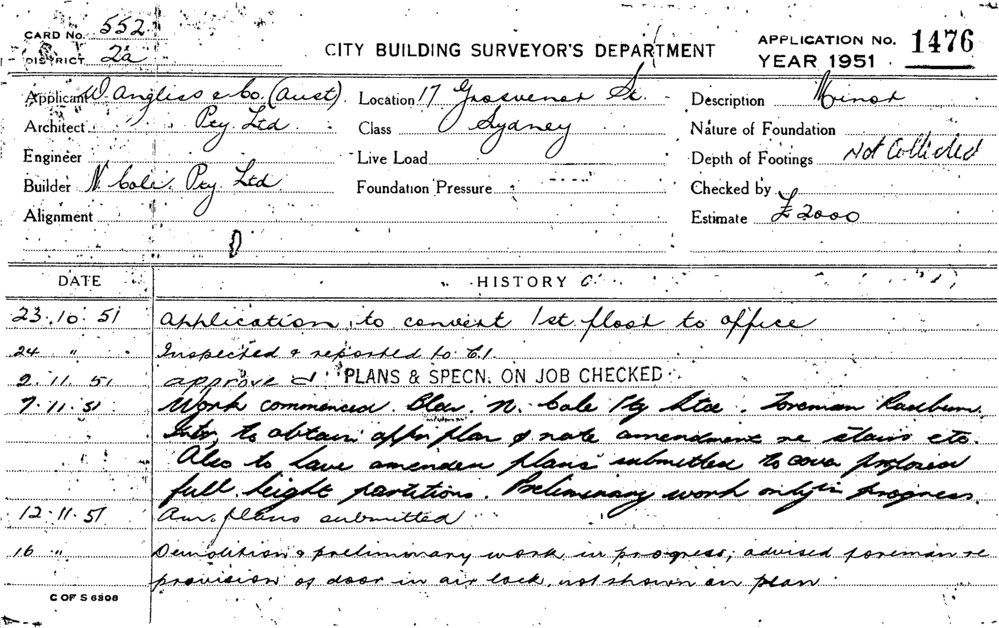 CARD No. 552
DISTRICT 2a
CITY BUILDING SURVEYOR'S DEPARTMENT
APPLICATION No. 1476
YEAR 1951
Applicant W Angliss & Co. (Aust).
Pty. Ltd
Location 17 Grosvenor St.
Sydney
Description Minor
Architect
Class
Nature of Foundation
Engineer
Live Load
Depth of Footings Not Collected
Builder N. Cole. Pty. Ltd
Foundation Pressure
Checked by
Alignment
Estimate £2000
DATE HISTORY
23.10.51 Application to convert 1st. floor to office
24 " Inspected & reported to C.I.
2.11.51 approved PLANS & SPECN. ON JOB CHECKED
7.11.51 Work commenced. Bldr. N. Cole Pty Ltd. Foreman
to obtain appr plan & note amendment re stairs etc.
Also to have amended plans submitted to cover proposed
full height partitions. Preliminary work only in progress
12.11.51 Am. plans submitted
16 " Demolition & preliminary work in progress, advised foreman re
provision of door in air lock, not shown on plan
C OF S 6308